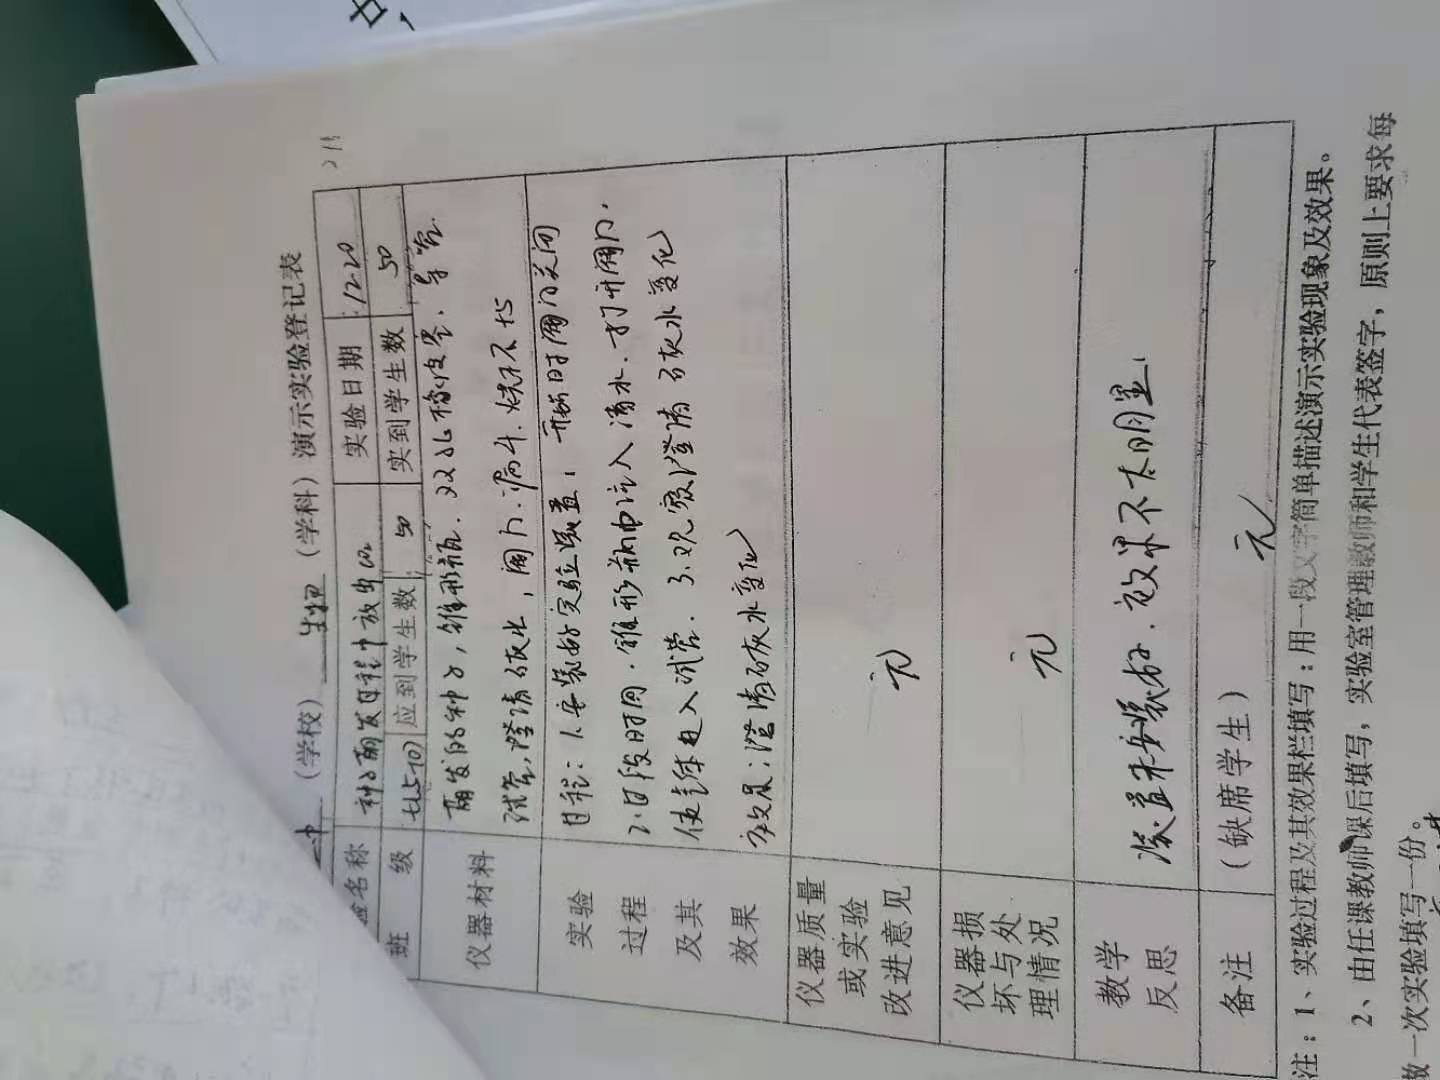 中 (学校) 生物 (学科) 演示实验登记表
验名称 种子萌发过程中放出CO₂ 实验日期 12.20
班 级 应到学生数 50 实到学生数 50
仪器材料 萌发的种子,锥形瓶.双孔橡皮塞.导管.
试管,澄清石灰水,阀门.漏斗.烧杯
实验过程及其效果
过程:1.安装好实验装置,开始时阀门关闭
2.一段时间.锥形瓶中注入清水.打开阀门.
使气体进入试管.3.观察澄清石灰水变化
效果:澄清石灰水变化
仪器质量或实验改进意见 无
仪器损坏与处理情况 无
教学反思 装置未装好.效果不太明显.
备注 (缺席学生) 无
注:1、实验过程及其效果栏填写:用一段文字简单描述演示实验现象及效果。
2、由任课教师课后填写,实验室管理教师和学生代表签字,原则上要求每
做一次实验填写一份。